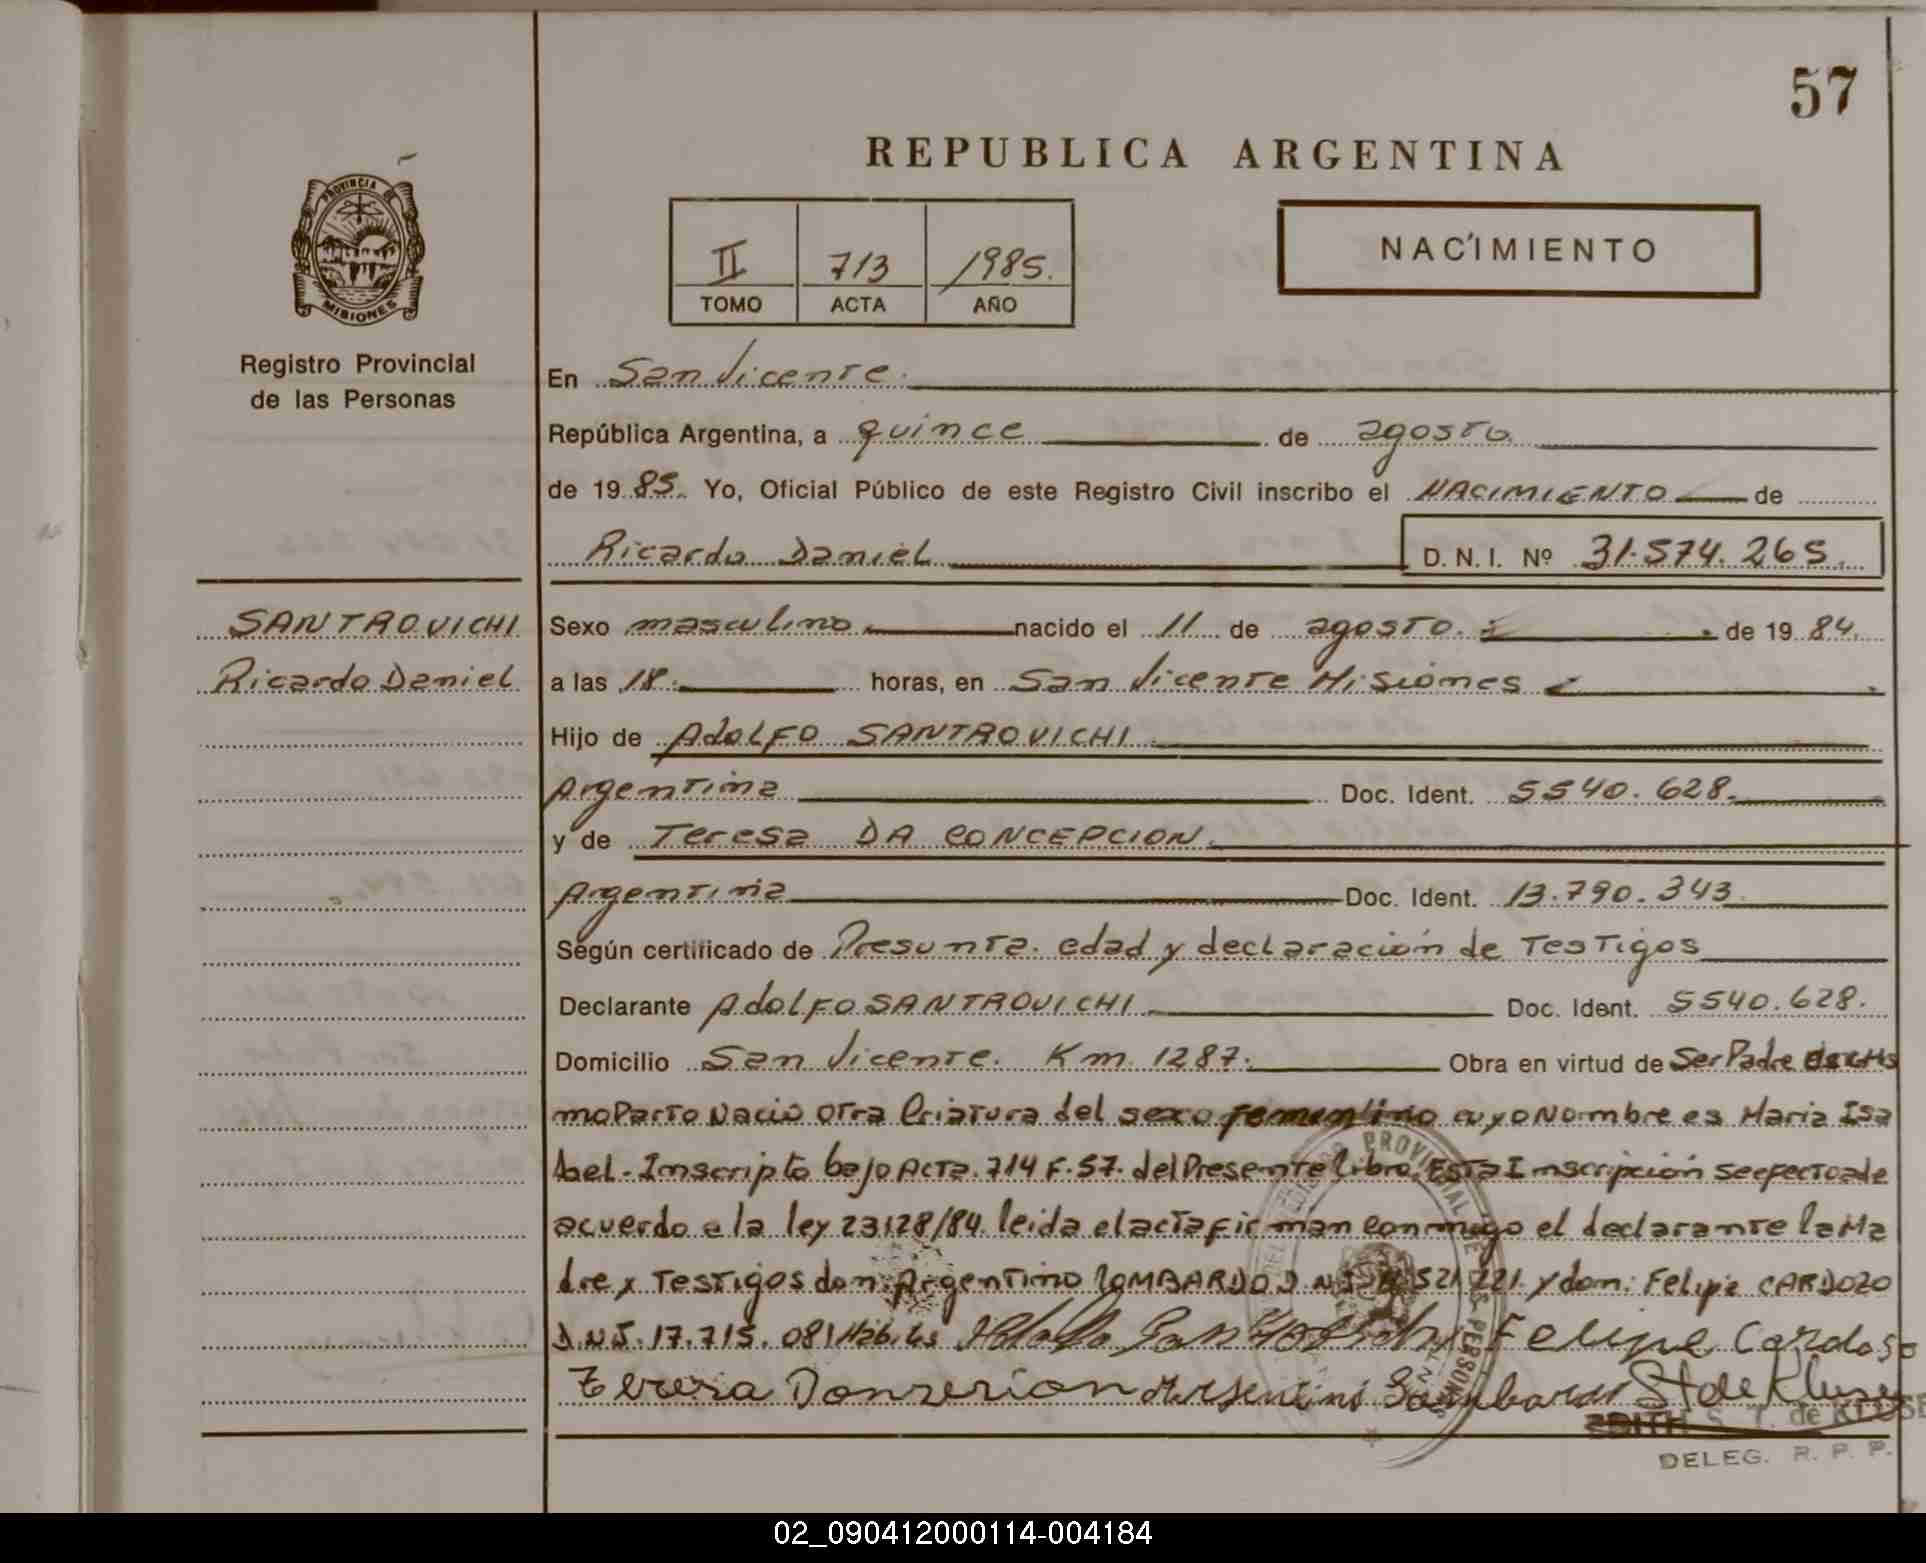 57
REPUBLICA ARGENTINA
PROVINCIA DE
MISIONES
II 713 1985.
TOMO ACTA AÑO
NACIMIENTO
Registro Provincial
de las Personas
En San Vicente.
República Argentina, a quince de agosto
de 19 85. Yo, Oficial Público de este Registro Civil inscribo el NACIMIENTO de
Ricardo Daniel D. N. I. Nº 31.574.265.
SANTROVICHI
Ricardo Daniel
Sexo masculino nacido el 11 de agosto. de 19 84.
a las 18. horas, en San Vicente Misiones
Hijo de Adolfo SANTROVICHI
Argentina Doc. Ident. 5540.628.
y de Teresa DA CONCEPCION.
Argentina Doc. Ident. 13.790.343.
Según certificado de Presunta. edad y declaración de Testigos
Declarante Adolfo SANTROVICHI Doc. Ident. 5540.628.
Domicilio San Vicente. Km. 1287. Obra en virtud de Ser Padre
mo Parto Nació otra Criatura del sexo femenino cuyo Nombre es Maria Isa
bel - Inscripto bajo Acta. 714 F. 57. del Presente Libro. Esta Inscripción se efectoa de
acuerdo a la ley 23128/84. leida el acta firman conmigo el declarante la Ma
dre y Testigos don: Argentino LOMBARDO D.N.I. 521.221. y don: Felipe CARDOZO
D.N.I. 17.715.081 Hábiles Felipe Cardoso
Tereza Argentino Lombardo St de Kluse
EDITH S. T. de KLUSE
DELEG. R. P. P.
02_090412000114-004184